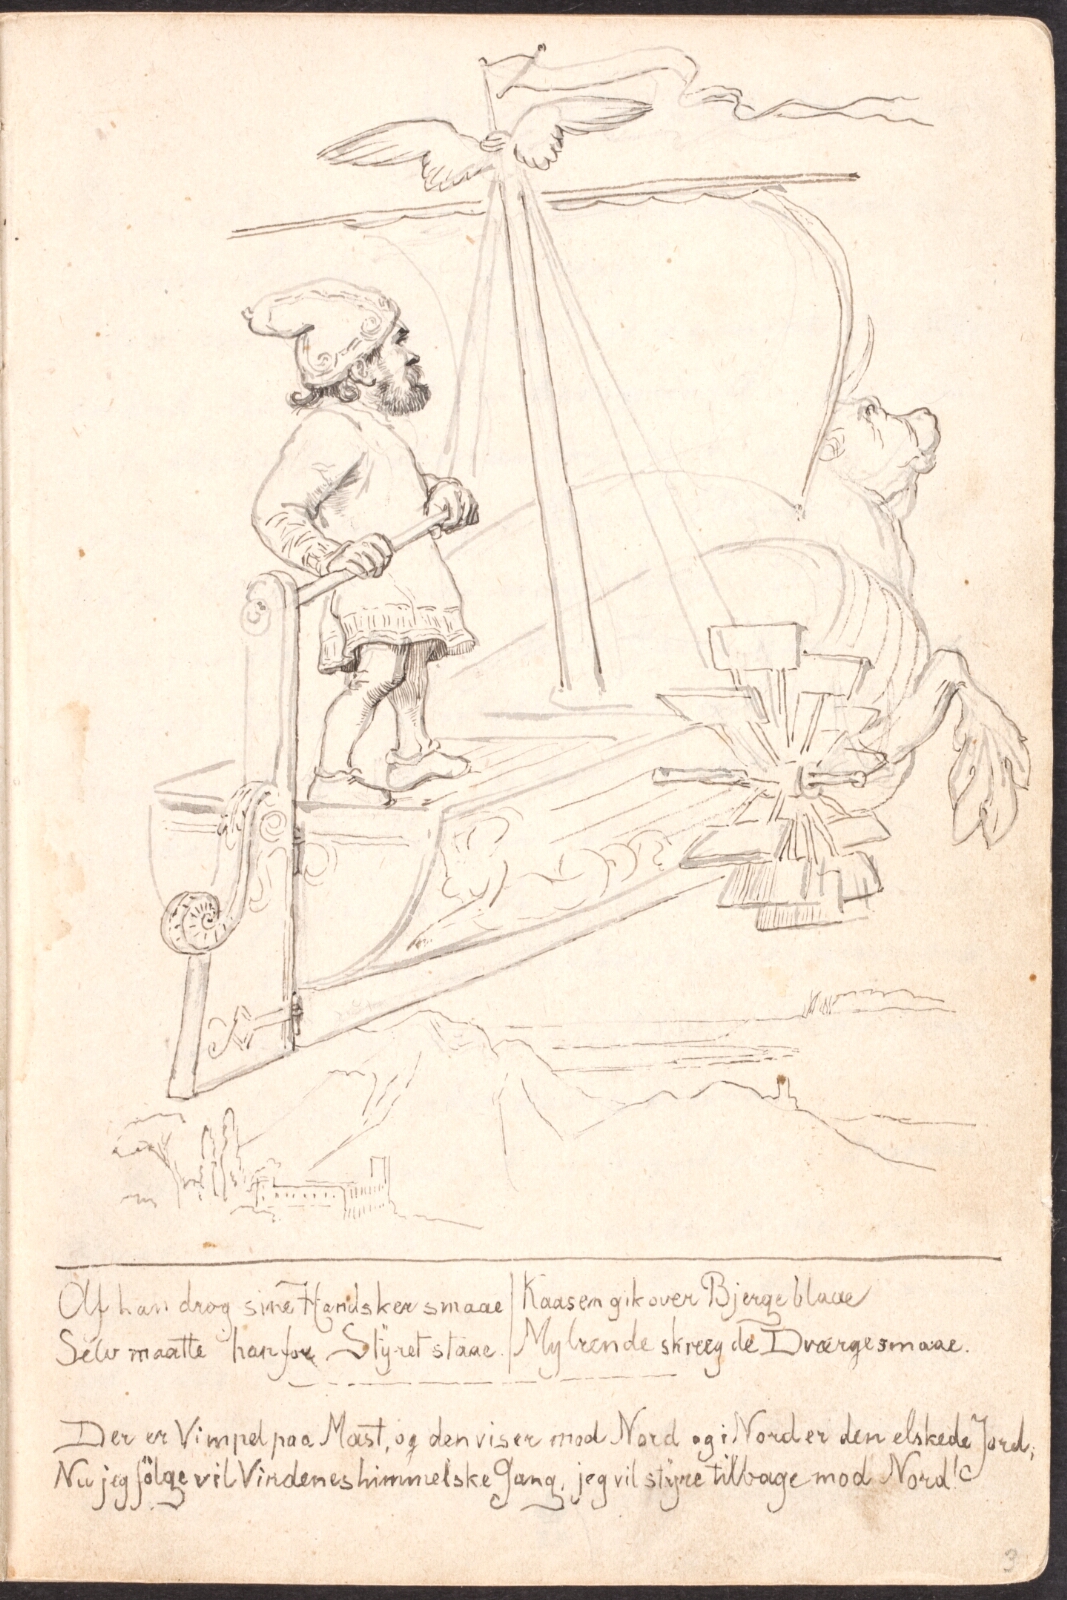 Olf han drog sine Handsker smaae | Kaasen gik over Bjerge blaae
Selv maatte han for Styret staae. | Mylrende skreeg de Dværge smaae.
Der er Vimpel paa Mast, og den viser mod Nord og i Nord er den elskede Jord,
Nu jeg følge vil Vindenes himmelske Gang, jeg vil styre tilbage mod Nord!
3